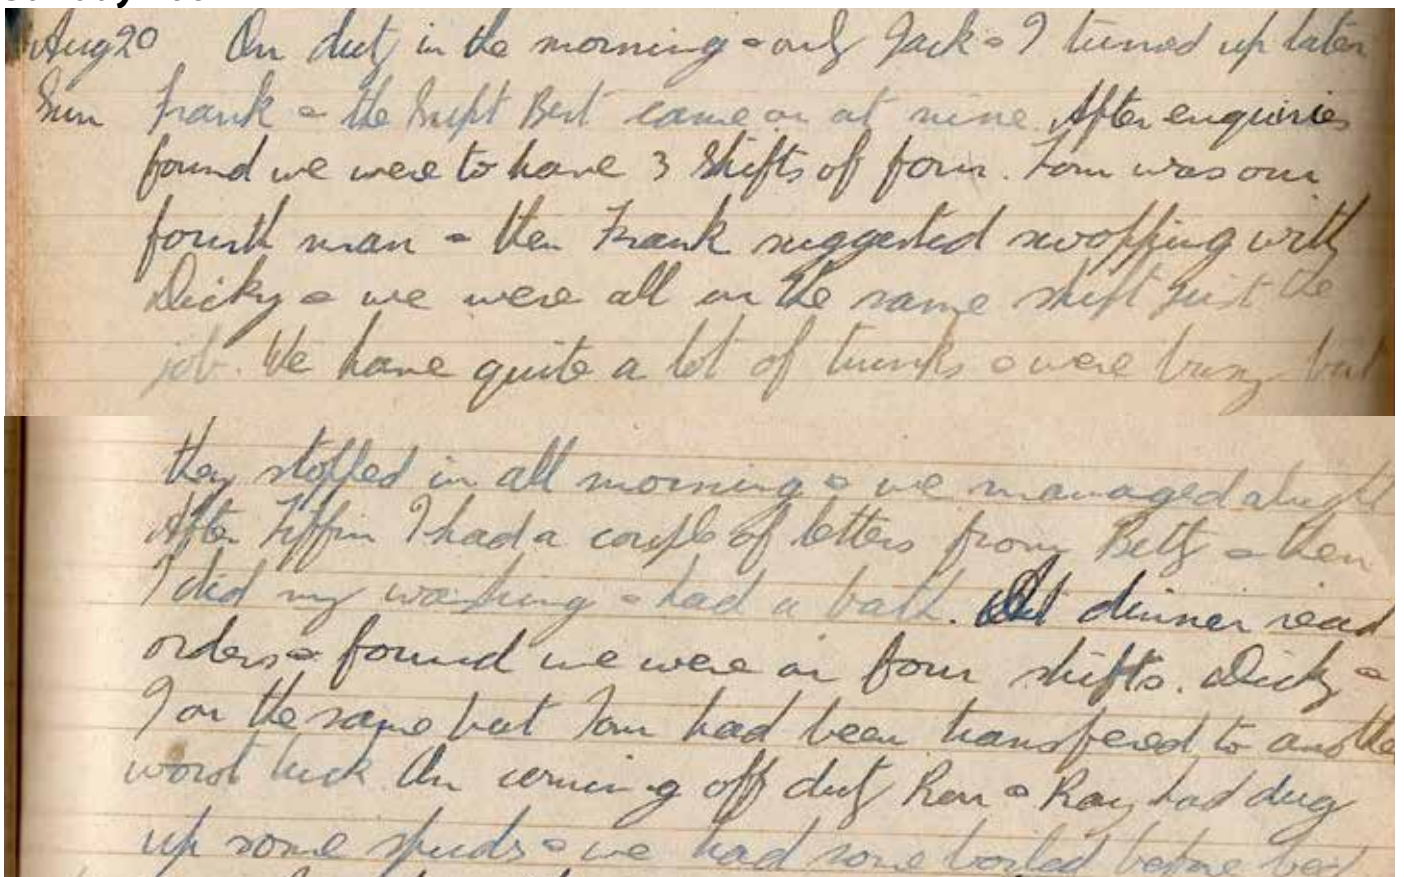 Aug 20 On duty in the morning & only Jack & I turned up later
Sun Frank & the Supt Bert came on at nine. After enquiries
found we were to have 3 shifts of four. Tom was our
fourth man & then Frank suggested swopping with
Dicky & we were all on the same shift just the
job. We have quite a lot of trunks & were busy but
they stopped in all morning & we managed alright
After Tiffin I had a couple of letters from Betty & then
I did my washing & had a bath. At dinner read
orders & found we were on four shifts. Dicky &
I on the same but Tom had been transfered to another
worst luck. On coming off duty Ron & Ray had dug
up some spuds & we had some boiled before bed